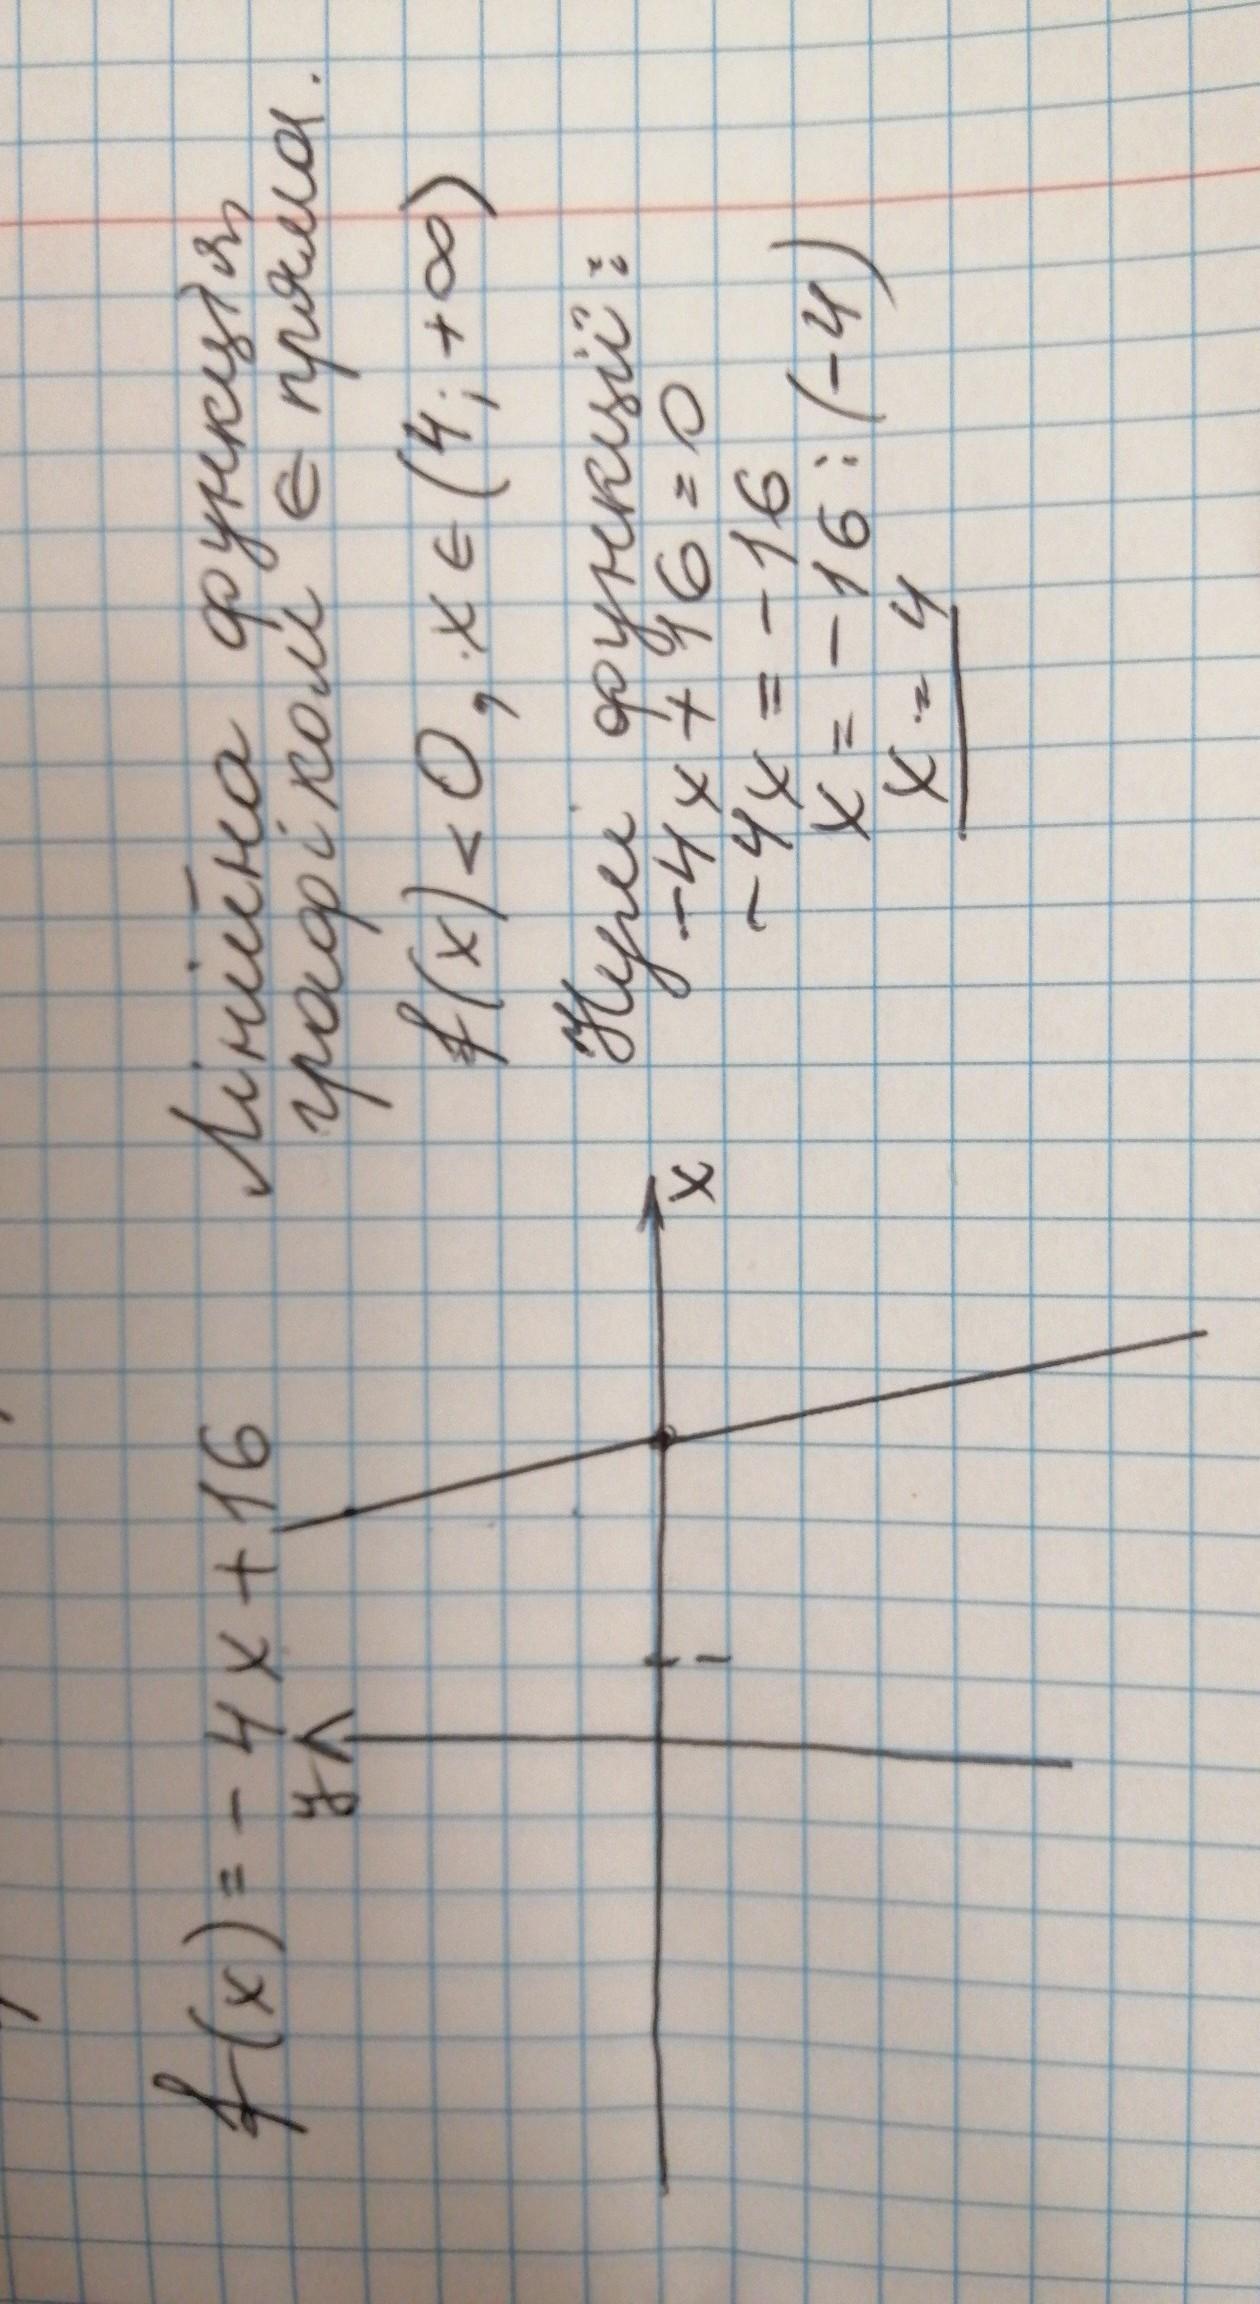 f(x) = - 4x + 16
y
x
1
Лінійна функція,
графіком є пряма.
f(x) < 0, x ∈ (4; +∞)
Нулі функції:
-4x + 16 = 0
-4x = -16
x = -16 : (-4)
x = 4